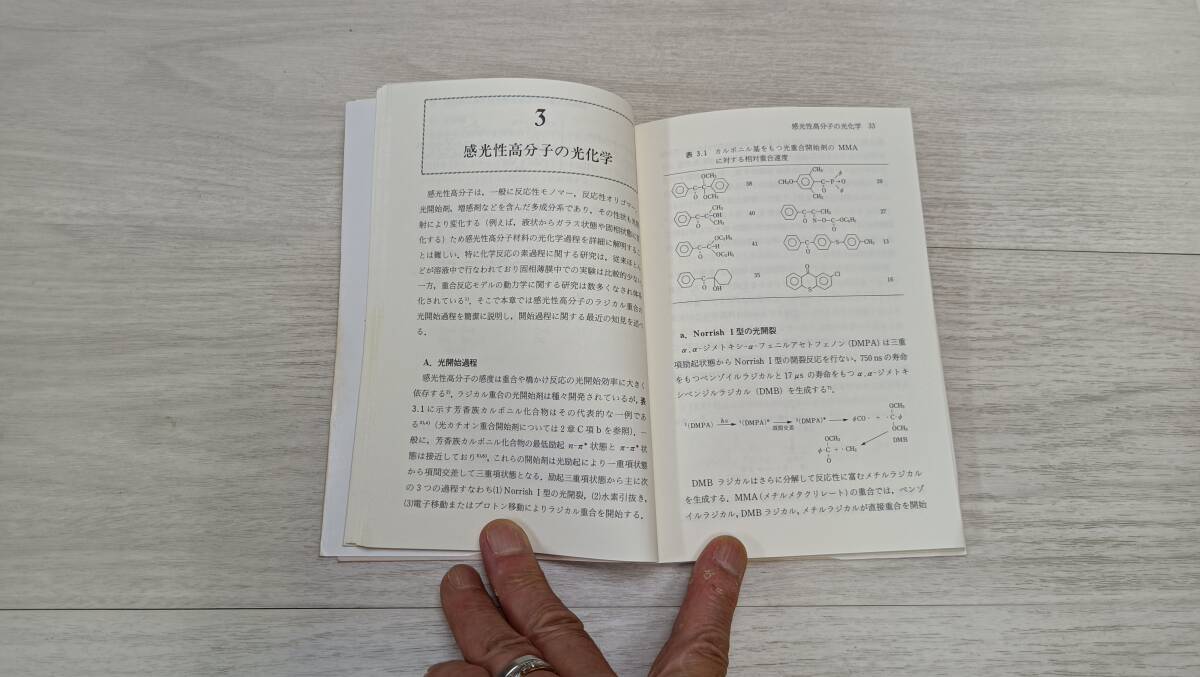 3
感光性高分子の光化学
感光性高分子は,一般に反応性モノマー,反応性オリゴマー,
光開始剤,増感剤などを含んだ多成分系であり,その性状も
射により変化する(例えば,液状からガラス状態や固相状態に
化する)ため感光性高分子材料の光化学過程を詳細に解明するこ
とは難しい.特に化学反応の素過程に関する研究は,従来ほとん
どが溶液中で行なわれており固相薄膜中での実験は比較的少ない
一方,重合反応モデルの動力学に関する研究は数多くなされ体
化されている¹⁾.そこで本章では感光性高分子のラジカル重合の
光開始過程を簡潔に説明し,開始過程に関する最近の知見を述べ
る.
A.光開始過程
感光性高分子の感度は重合や橋かけ反応の光開始効率に大きく
依存する²⁾.ラジカル重合の光開始剤は種々開発されているが,表
3.1に示す芳香族カルボニル化合物はその代表的な一例であ
る³⁾,⁴⁾(光カチオン重合開始剤については2章C項bを参照).一
般に,芳香族カルボニル化合物の最低励起 n-π* 状態と π-π* 状
態は接近しており⁵⁾,⁶⁾,これらの開始剤は光励起により一重項状態
から項間交差して三重項状態となる.励起三重項状態から主に次
の3つの過程すなわち(1) Norrish I型の光開裂,(2)水素引抜き,
(3)電子移動またはプロトン移動によりラジカル重合を開始する.
感光性高分子の光化学 33
表 3.1 カルボニル基をもつ光重合開始剤の MMA
に対する相対重合速度
OCH₃
C-C
O OCH₃
38
CH₃
CH₃O C-P→O
O
CH₃
φ
φ
CH₃
C-C-OH
O CH₃
40
C-C-CH₃
O S-O-C-OC₂H₅
O
27
OC₂H₅
C-C-H
O OC₂H₅
41
C
O
S CH₃
13
C
O OH
35
O
Cl
S
16
a. Norrish I型の光開裂
α,α-ジメトキシ-α-フェニルアセトフェノン(DMPA)は三重
項励起状態から Norrish I型の開裂反応を行ない,750 nsの寿命
をもつベンゾイルラジカルと17 μsの寿命をもつ α,α-ジメトキ
シベンジルラジカル(DMB)を生成する⁷⁾.
¹(DMPA) hν ¹(DMPA)* 項間交差 ³(DMPA)* φCO· + ·C-φ
OCH₃
OCH₃
DMB
OCH₃
φ-C + ·CH₃
O
DMBラジカルはさらに分解して反応性に富むメチルラジカル
を生成する.MMA(メチルメタクリレート)の重合では,ベンゾ
イルラジカル,DMBラジカル,メチルラジカルが直接重合を開始